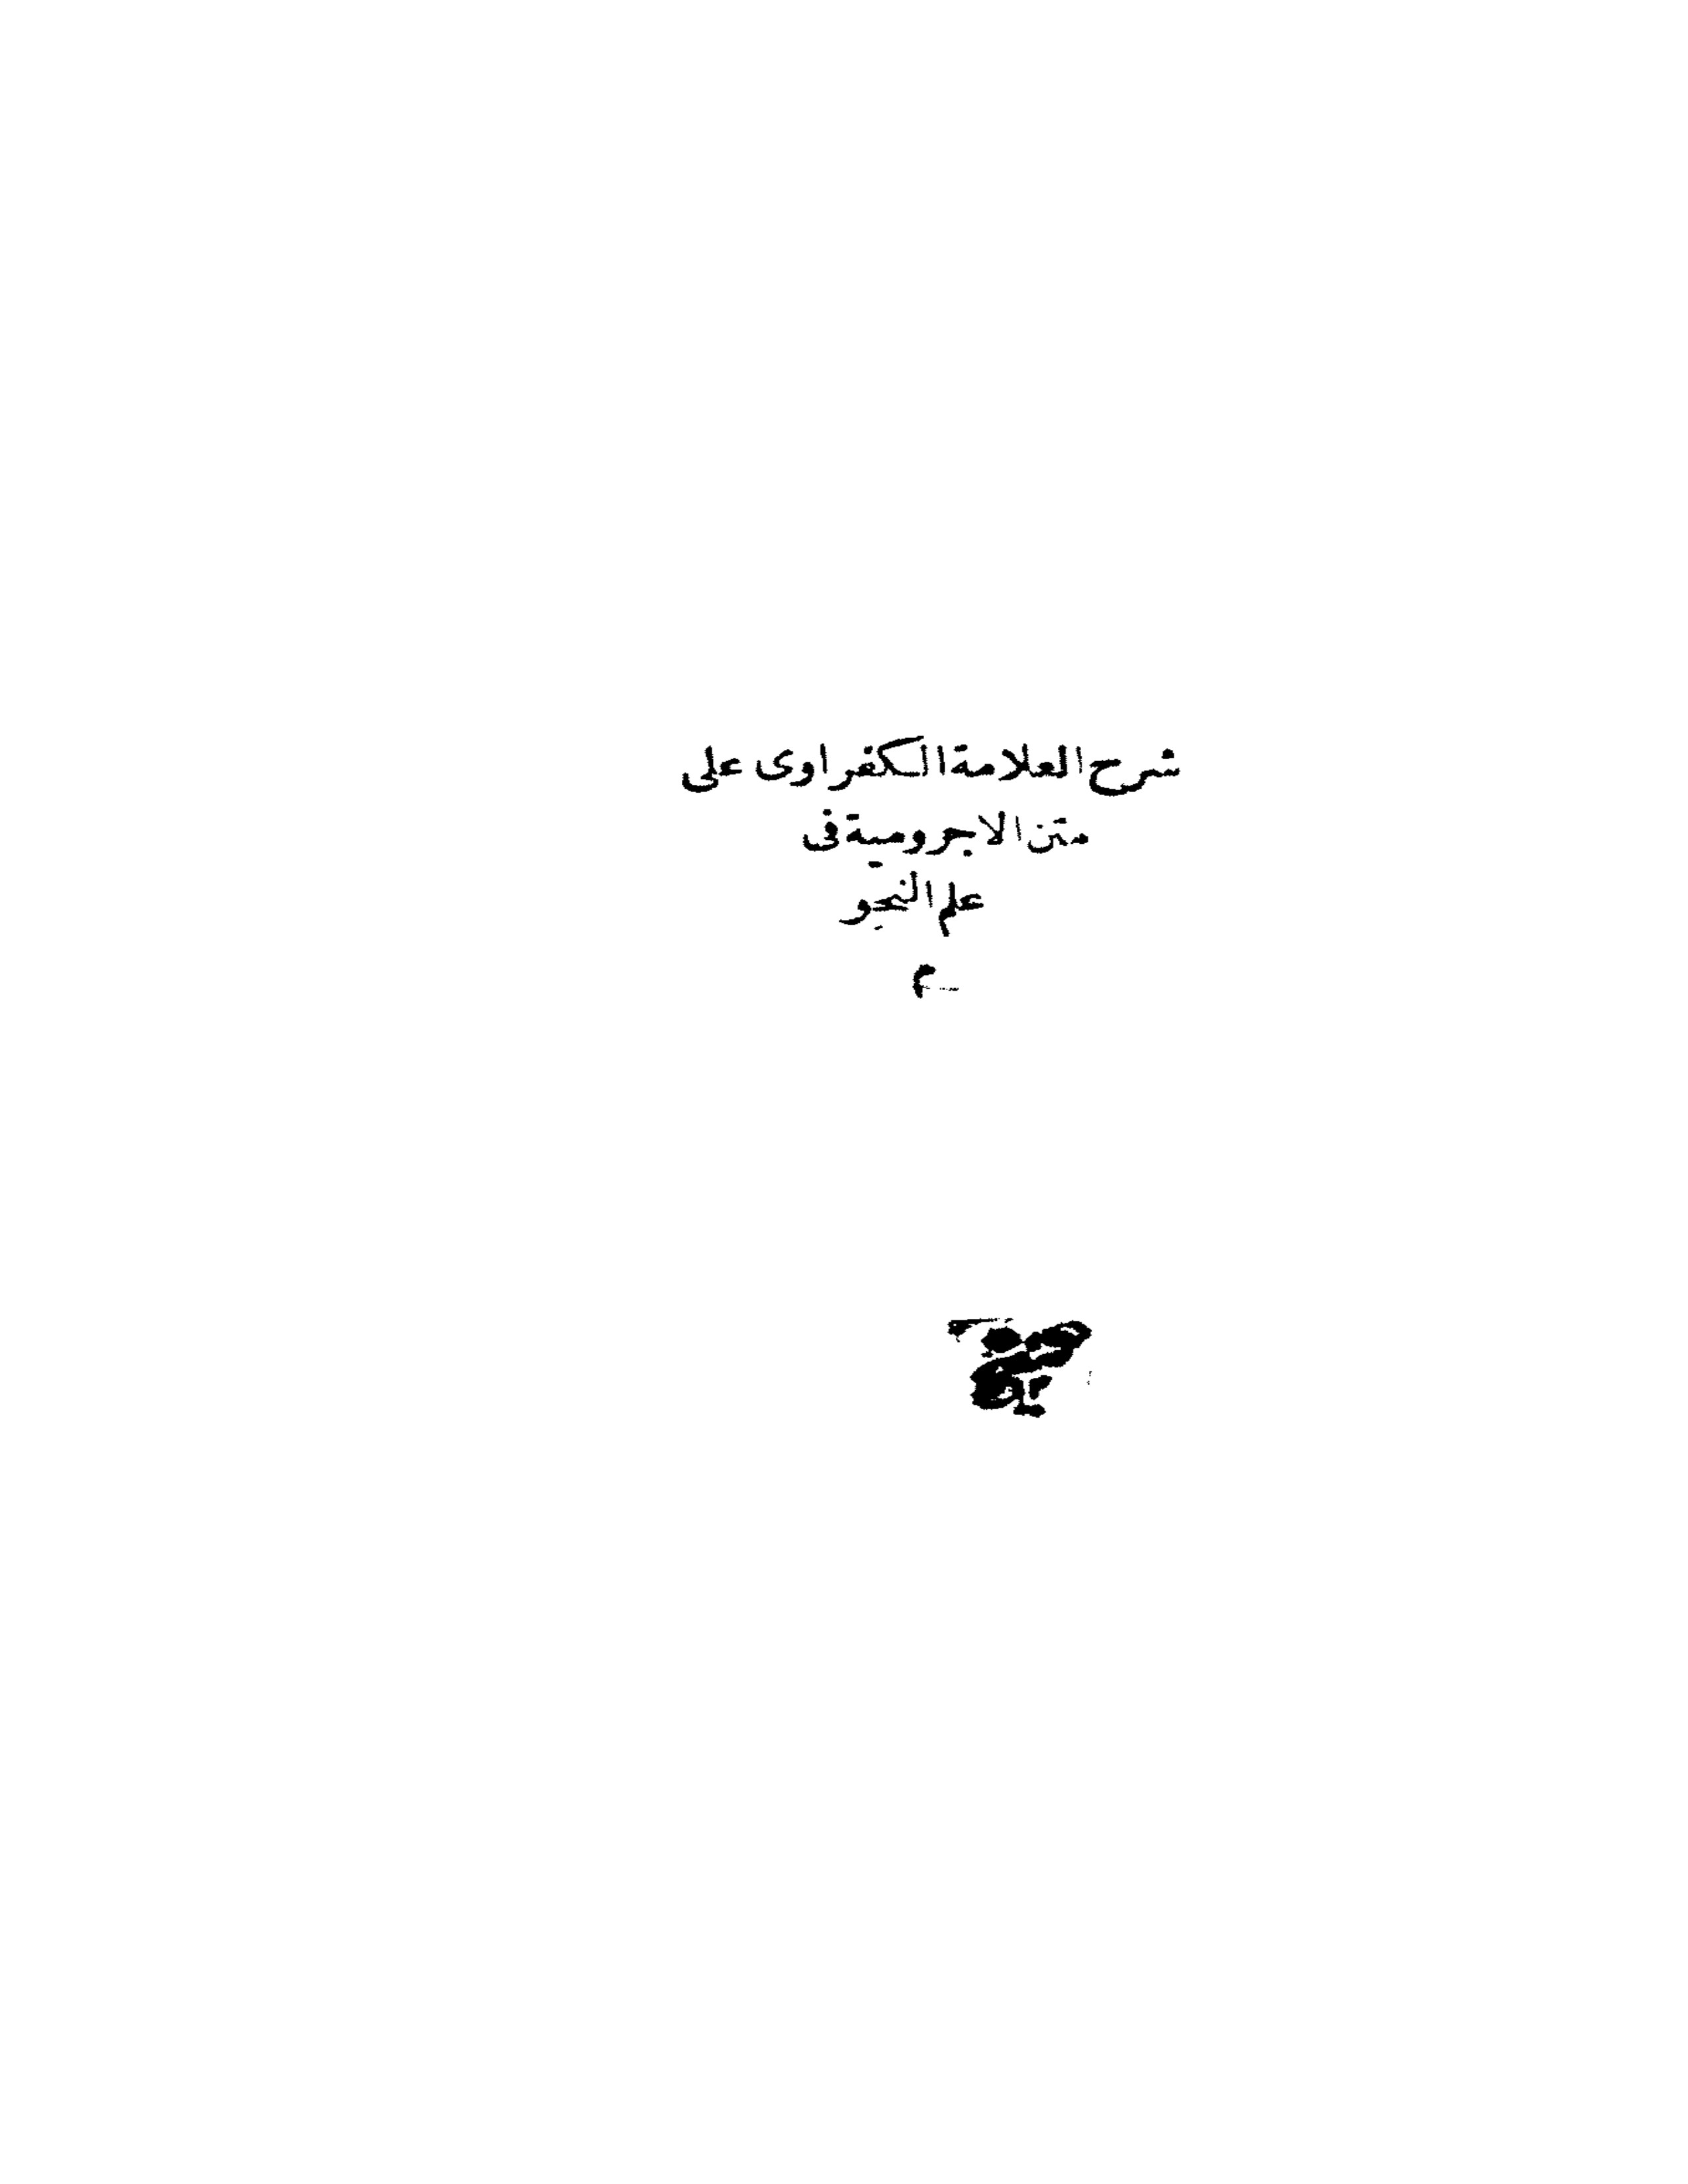 شرح العلامة الكفراوى على
متن الاجرومية فى
علم النحو
م